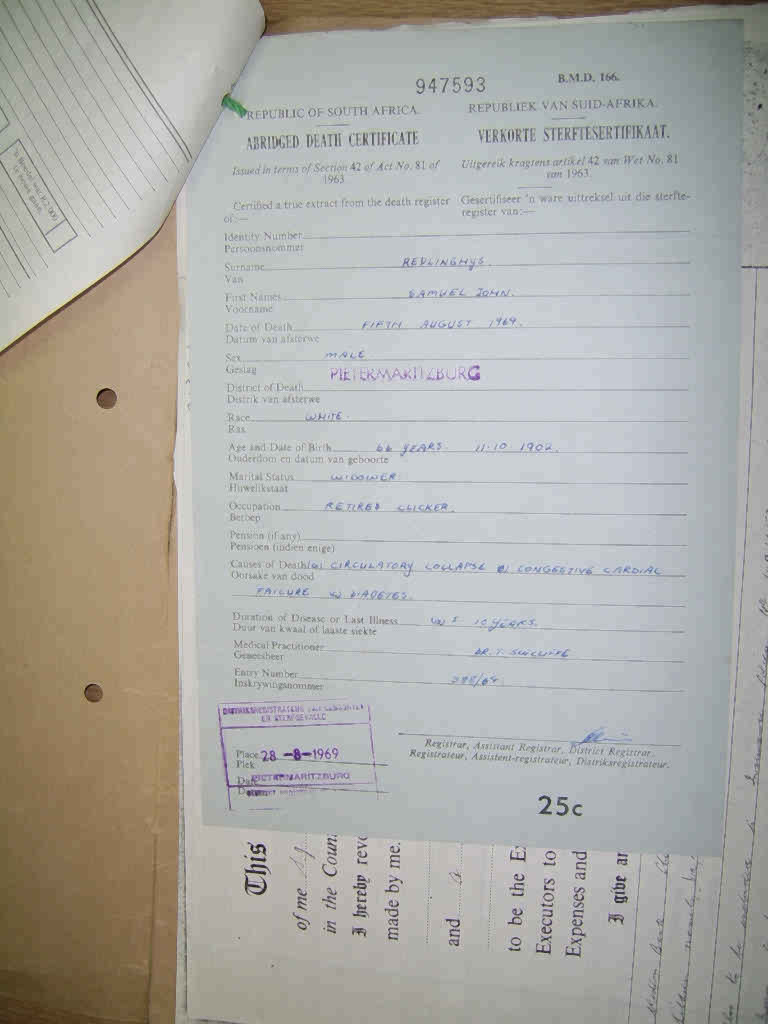 947593 B.M.D. 166.
REPUBLIC OF SOUTH AFRICA. REPUBLIEK VAN SUID-AFRIKA.
ABRIDGED DEATH CERTIFICATE VERKORTE STERFTESERTIFIKAAT.
Issued in terms of Section 42 of Act No. 81 of 1963. Uitgereik kragtens artikel 42 van Wet No. 81 van 1963.
Certified a true extract from the death register of:— Gesertifiseer 'n ware uittreksel uit die sterfte-register van:—
Identity Number
Persoonsnommer
Surname REDLINGHYS.
Van
First Names SAMUEL JOHN.
Voorname
Date of Death FIFTH AUGUST 1969.
Datum van afsterwe
Sex MALE
Geslag PIETERMARITZBURG
District of Death
Distrik van afsterwe
Race WHITE.
Ras
Age and Date of Birth 66 YEARS. 11.10.1902.
Ouderdom en datum van geboorte
Marital Status WIDOWER.
Huwelikstaat
Occupation RETIRED CLICKER.
Beroep
Pension (if any)
Pensioen (indien enige)
Causes of Death (a) CIRCULATORY COLLAPSE CONGESTIVE CARDIAL
Oorsake van dood
FAILURE DIABETES.
Duration of Disease or Last Illness 10 YEARS.
Duur van kwaal of laaste siekte
Medical Practitioner DR. T.
Geneesheer
Entry Number
Inskrywingsnommer
DISTRIKSREGISTRATEUR VAN GEBOORTES
EN STERFGEVALLE
Place 28 -8-1969
Plek
Date PIETERMARITZBURG
Registrar, Assistant Registrar, District Registrar.
Registrateur, Assistent-registrateur, Distriksregistrateur.
25c
This
of me
in the Coun
I hereby revo
made by me.
and a
to be the Ex
Executors to
Expenses and
I give an